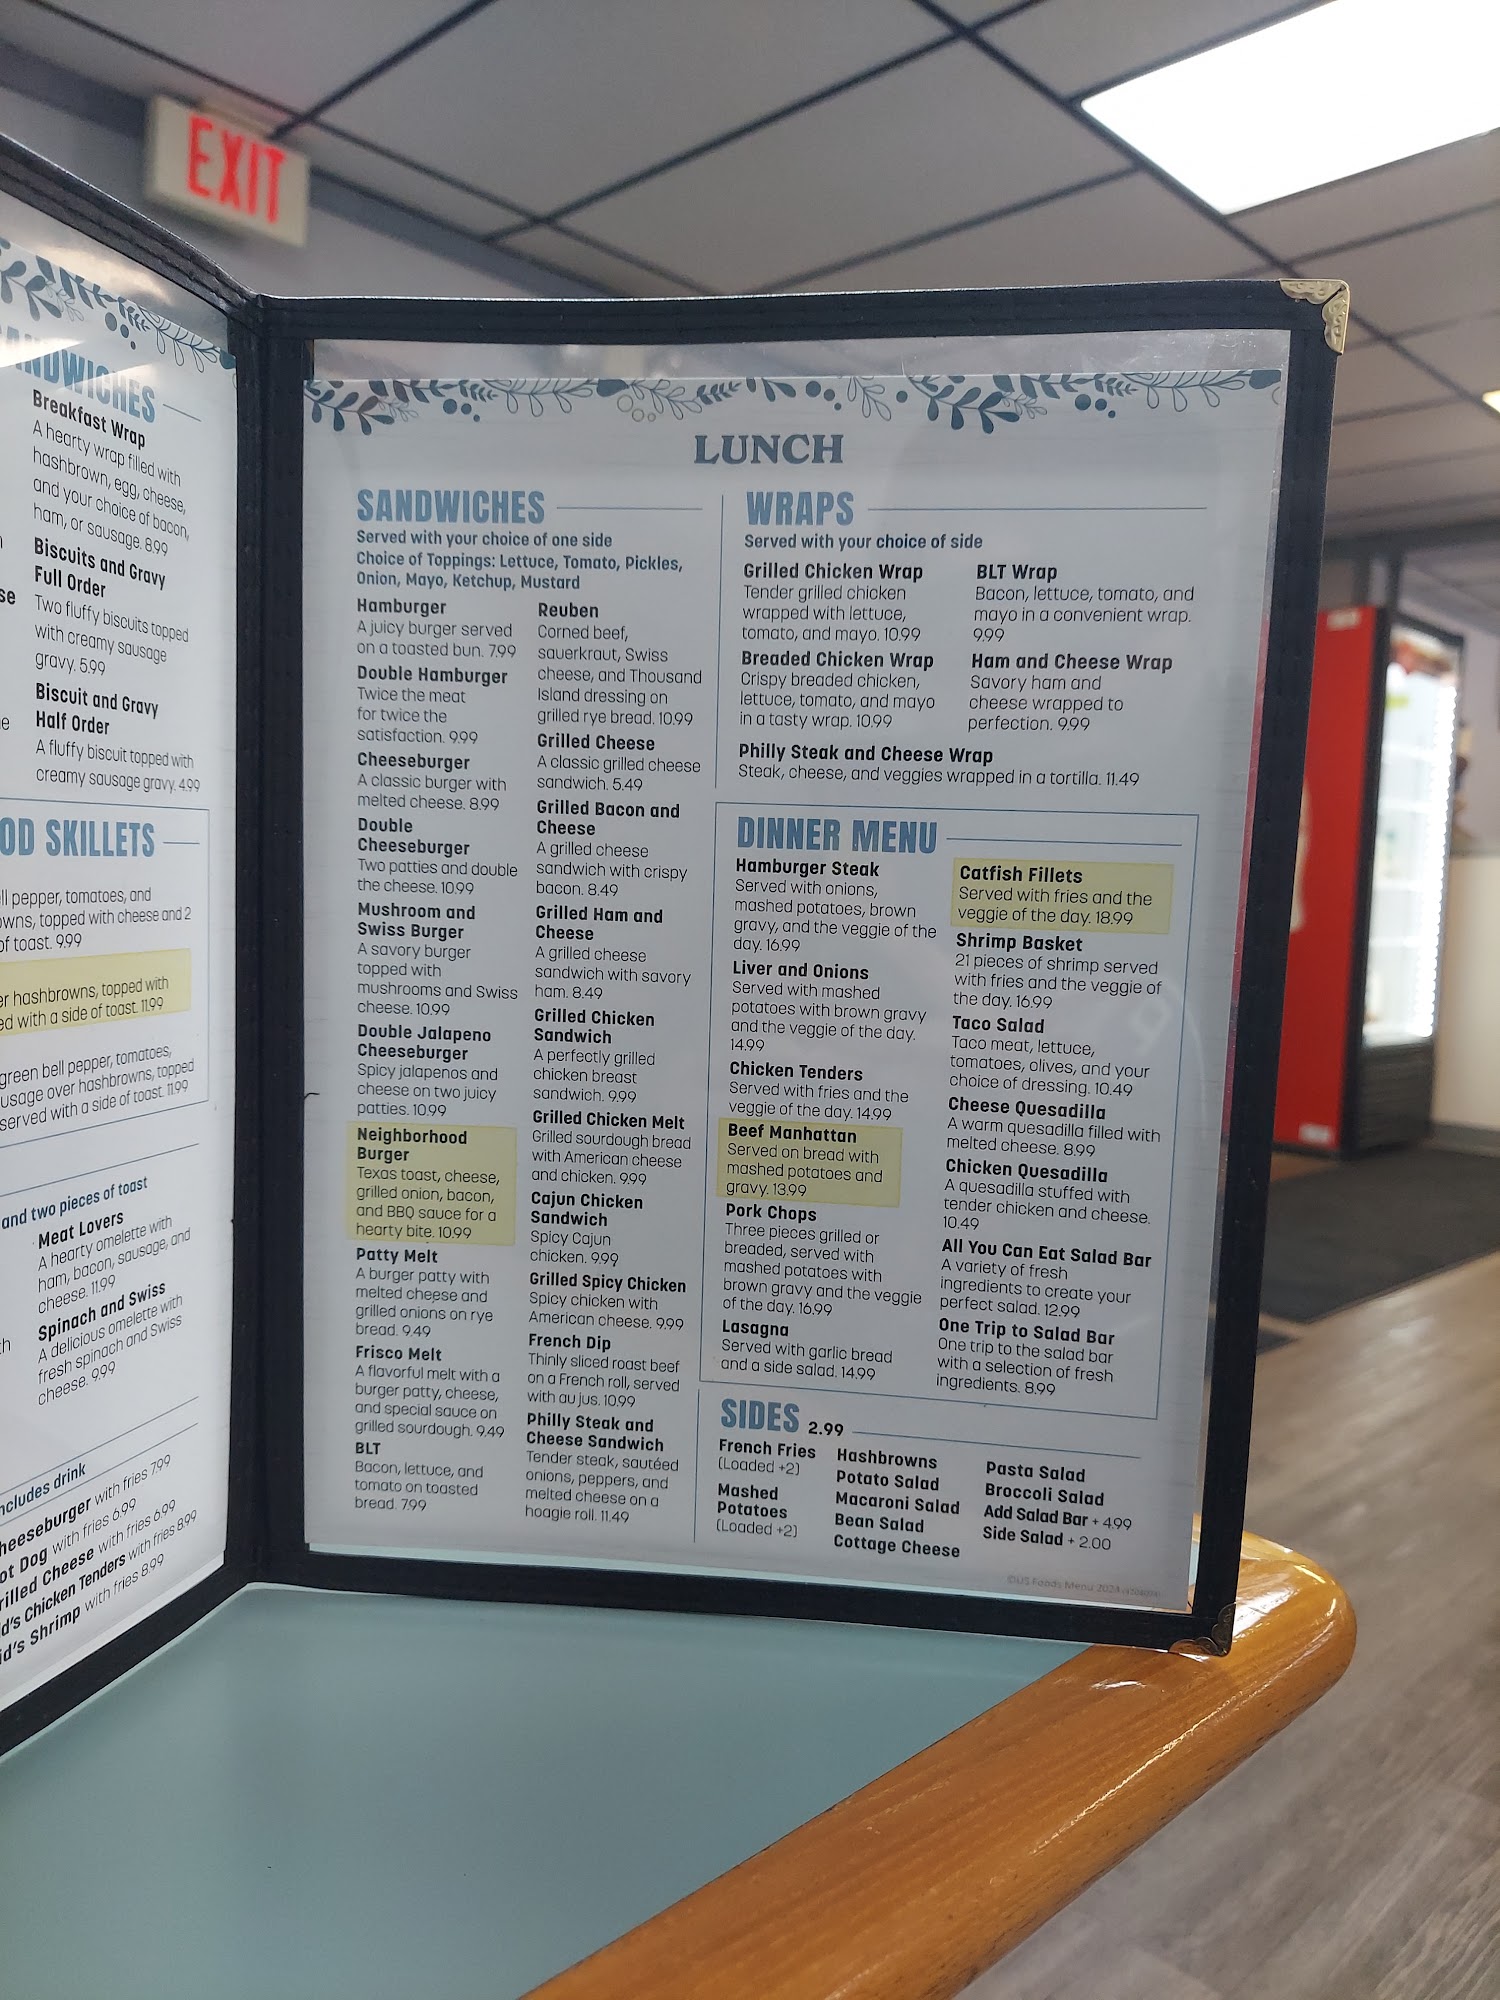 EXIT
SANDWICHES
Breakfast Wrap
A hearty wrap filled with
hashbrown, egg, cheese,
and your choice of bacon,
ham, or sausage. 8.99
Biscuits and Gravy
Full Order
Two fluffy biscuits topped
with creamy sausage
gravy. 5.99
Biscuit and Gravy
Half Order
A fluffy biscuit topped with
creamy sausage gravy. 4.99
OD SKILLETS
ll pepper, tomatoes, and
owns, topped with cheese and 2
of toast. 9.99
er hashbrowns, topped with
ed with a side of toast. 11.99
green bell pepper, tomatoes,
usage over hashbrowns, topped
served with a side of toast. 11.99
and two pieces of toast
Meat Lovers
A hearty omelette with
ham, bacon, sausage, and
cheese. 11.99
Spinach and Swiss
A delicious omelette with
fresh spinach and Swiss
cheese. 9.99
ncludes drink
heeseburger with fries 7.99
ot Dog with fries 6.99
rilled Cheese with fries 6.99
d's Chicken Tenders with fries 8.99
id's Shrimp with fries 8.99
LUNCH
SANDWICHES
Served with your choice of one side
Choice of Toppings: Lettuce, Tomato, Pickles,
Onion, Mayo, Ketchup, Mustard
Hamburger
A juicy burger served
on a toasted bun. 7.99
Double Hamburger
Twice the meat
for twice the
satisfaction. 9.99
Cheeseburger
A classic burger with
melted cheese. 8.99
Double
Cheeseburger
Two patties and double
the cheese. 10.99
Mushroom and
Swiss Burger
A savory burger
topped with
mushrooms and Swiss
cheese. 10.99
Double Jalapeno
Cheeseburger
Spicy jalapenos and
cheese on two juicy
patties. 10.99
Neighborhood
Burger
Texas toast, cheese,
grilled onion, bacon,
and BBQ sauce for a
hearty bite. 10.99
Patty Melt
A burger patty with
melted cheese and
grilled onions on rye
bread. 9.49
Frisco Melt
A flavorful melt with a
burger patty, cheese,
and special sauce on
grilled sourdough. 9.49
BLT
Bacon, lettuce, and
tomato on toasted
bread. 7.99
Reuben
Corned beef,
sauerkraut, Swiss
cheese, and Thousand
Island dressing on
grilled rye bread. 10.99
Grilled Cheese
A classic grilled cheese
sandwich. 5.49
Grilled Bacon and
Cheese
A grilled cheese
sandwich with crispy
bacon. 8.49
Grilled Ham and
Cheese
A grilled cheese
sandwich with savory
ham. 8.49
Grilled Chicken
Sandwich
A perfectly grilled
chicken breast
sandwich. 9.99
Grilled Chicken Melt
Grilled sourdough bread
with American cheese
and chicken. 9.99
Cajun Chicken
Sandwich
Spicy Cajun
chicken. 9.99
Grilled Spicy Chicken
Spicy chicken with
American cheese. 9.99
French Dip
Thinly sliced roast beef
on a French roll, served
with au jus. 10.99
Philly Steak and
Cheese Sandwich
Tender steak, sautéed
onions, peppers, and
melted cheese on a
hoagie roll. 11.49
WRAPS
Served with your choice of side
Grilled Chicken Wrap
Tender grilled chicken
wrapped with lettuce,
tomato, and mayo. 10.99
Breaded Chicken Wrap
Crispy breaded chicken,
lettuce, tomato, and mayo
in a tasty wrap. 10.99
BLT Wrap
Bacon, lettuce, tomato, and
mayo in a convenient wrap.
9.99
Ham and Cheese Wrap
Savory ham and
cheese wrapped to
perfection. 9.99
Philly Steak and Cheese Wrap
Steak, cheese, and veggies wrapped in a tortilla. 11.49
DINNER MENU
Hamburger Steak
Served with onions,
mashed potatoes, brown
gravy, and the veggie of the
day. 16.99
Liver and Onions
Served with mashed
potatoes with brown gravy
and the veggie of the day.
14.99
Chicken Tenders
Served with fries and the
veggie of the day. 14.99
Beef Manhattan
Served on bread with
mashed potatoes and
gravy. 13.99
Pork Chops
Three pieces grilled or
breaded, served with
mashed potatoes with
brown gravy and the veggie
of the day. 16.99
Lasagna
Served with garlic bread
and a side salad. 14.99
Catfish Fillets
Served with fries and the
veggie of the day. 18.99
Shrimp Basket
21 pieces of shrimp served
with fries and the veggie of
the day. 16.99
Taco Salad
Taco meat, lettuce,
tomatoes, olives, and your
choice of dressing. 10.49
Cheese Quesadilla
A warm quesadilla filled with
melted cheese. 8.99
Chicken Quesadilla
A quesadilla stuffed with
tender chicken and cheese.
10.49
All You Can Eat Salad Bar
A variety of fresh
ingredients to create your
perfect salad. 12.99
One Trip to Salad Bar
One trip to the salad bar
with a selection of fresh
ingredients. 8.99
SIDES 2.99
French Fries
(Loaded +2)
Mashed
Potatoes
(Loaded +2)
Hashbrowns
Potato Salad
Macaroni Salad
Bean Salad
Cottage Cheese
Pasta Salad
Broccoli Salad
Add Salad Bar + 4.99
Side Salad + 2.00
©US Foods Menu 2024